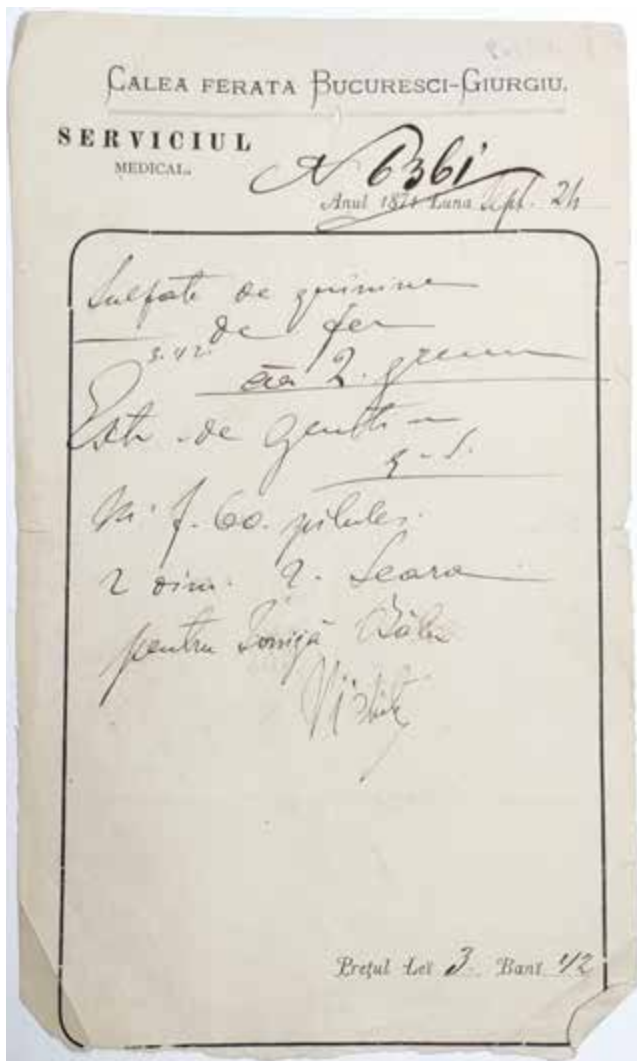 CALEA FERATA BUCURESCI-GIURGIU.
SERVICIUL
MEDICAL.
N 6361
Anul 1871 Luna Sept. 24
Sulfate de quinine
de fer
3.42.
āā 2. gramm
Extr de Genti
q. s.
M. f. 60. pilules.
2 dim. 2. Seara
pentru Ioniță
Prețul Leĭ 3 Banĭ 42